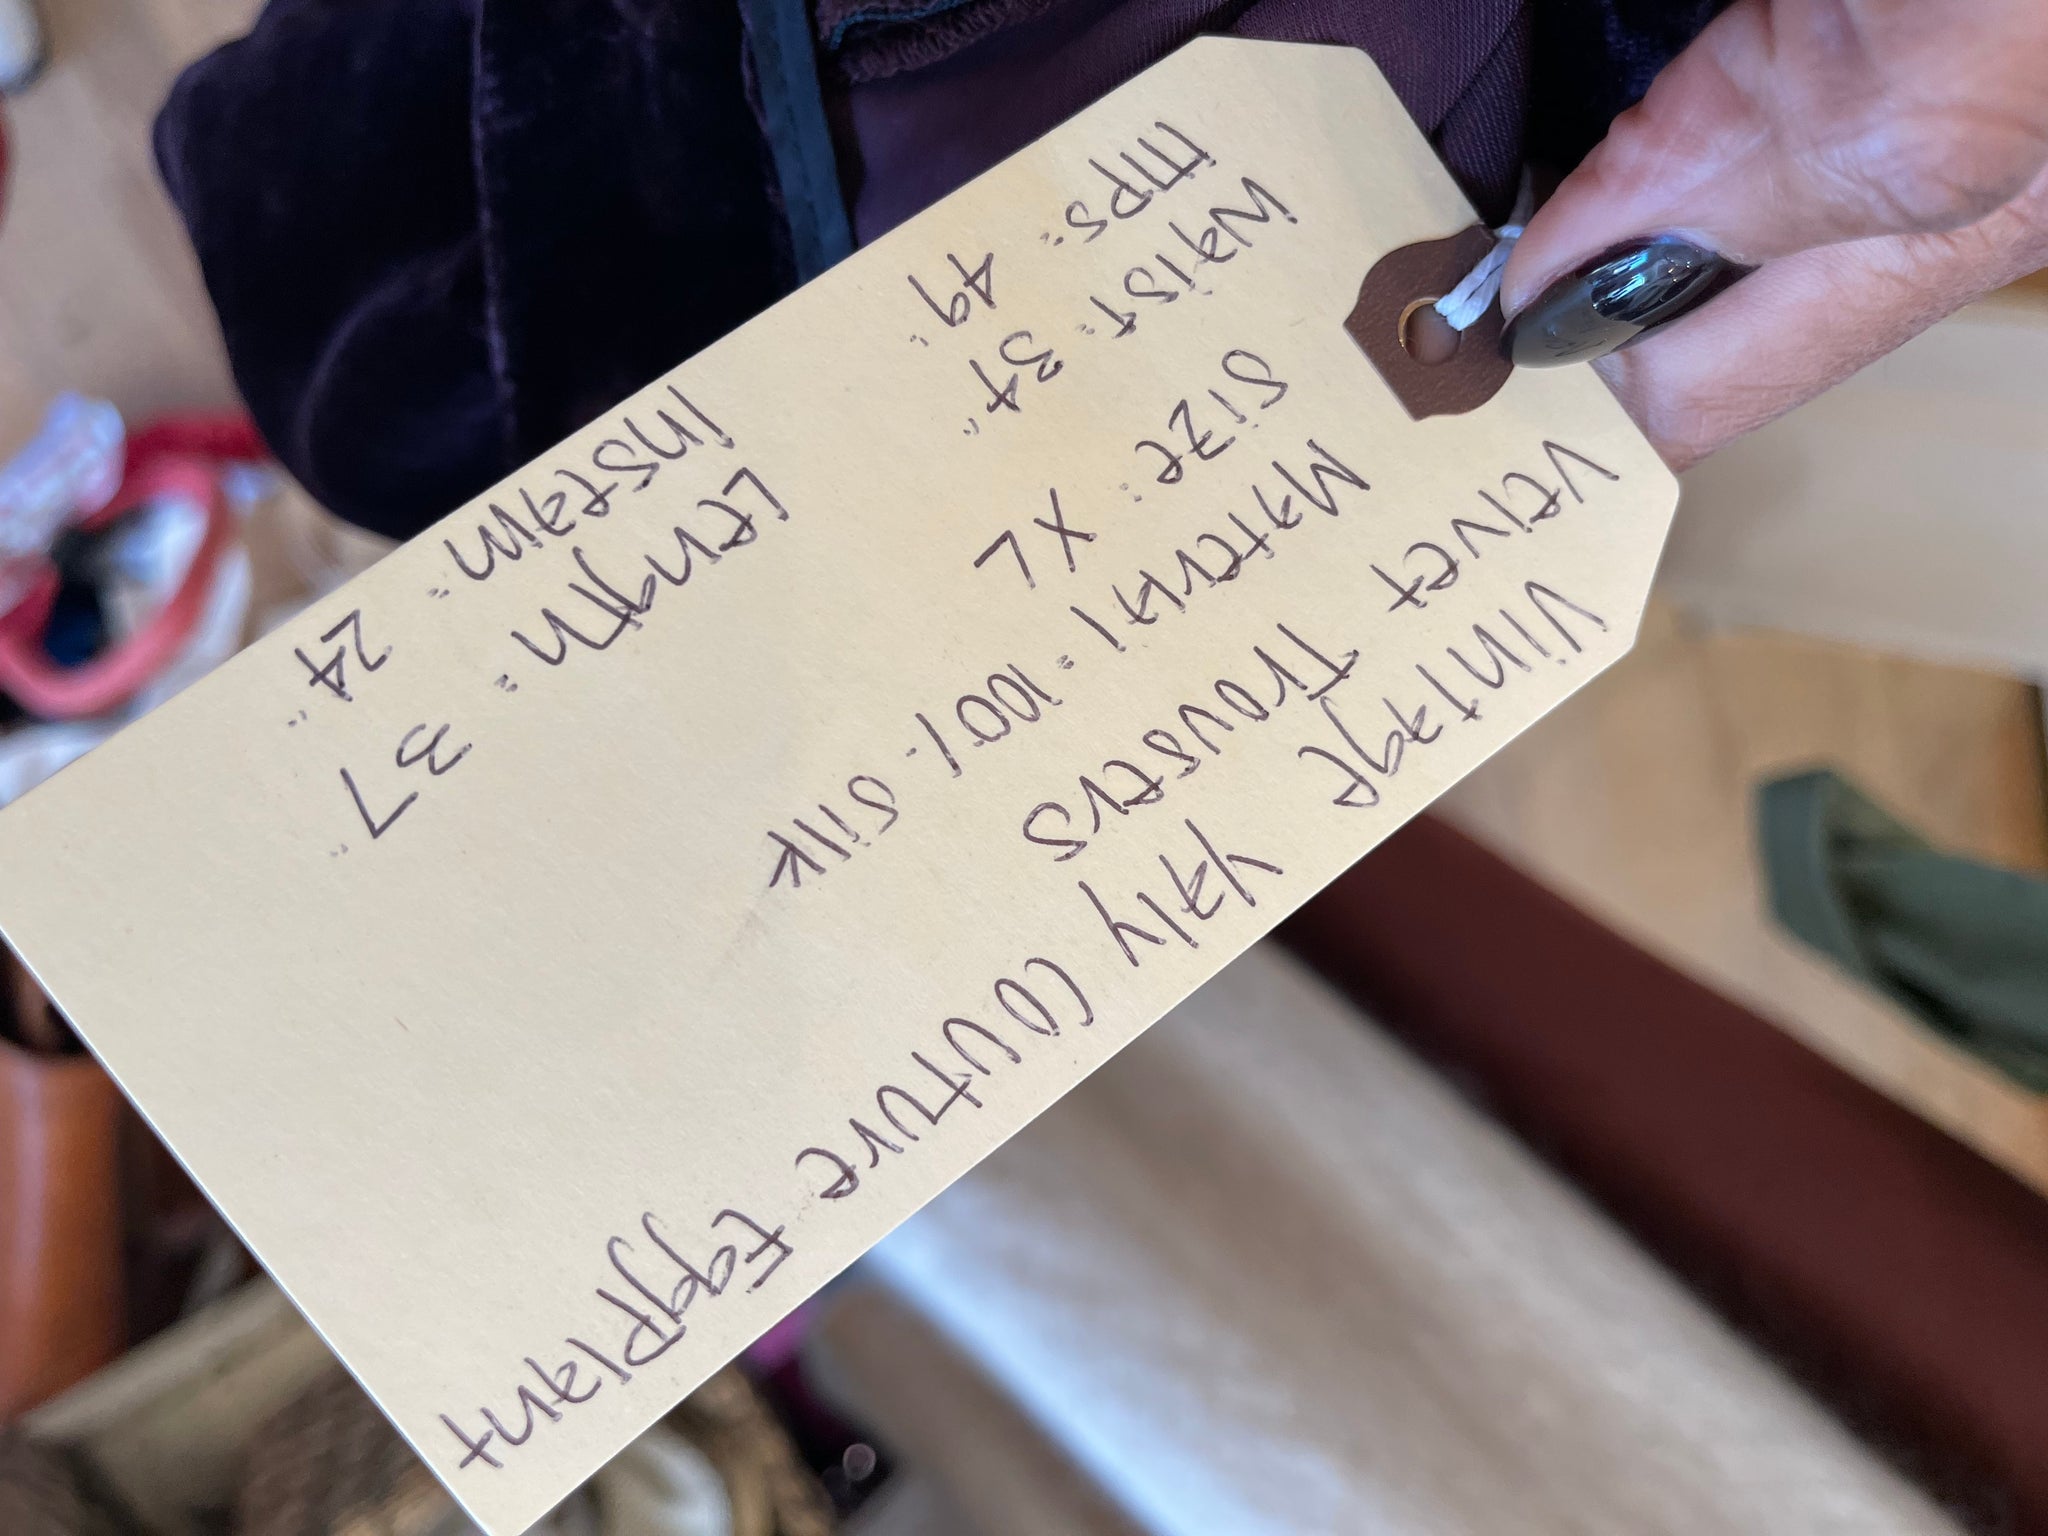 Vintage Yaly Couture Eggplant
Velvet Trousers
Material: 100% Silk
Size: XL
Waist: 34" Length: 37"
Hips: 49" Inseam: 24"